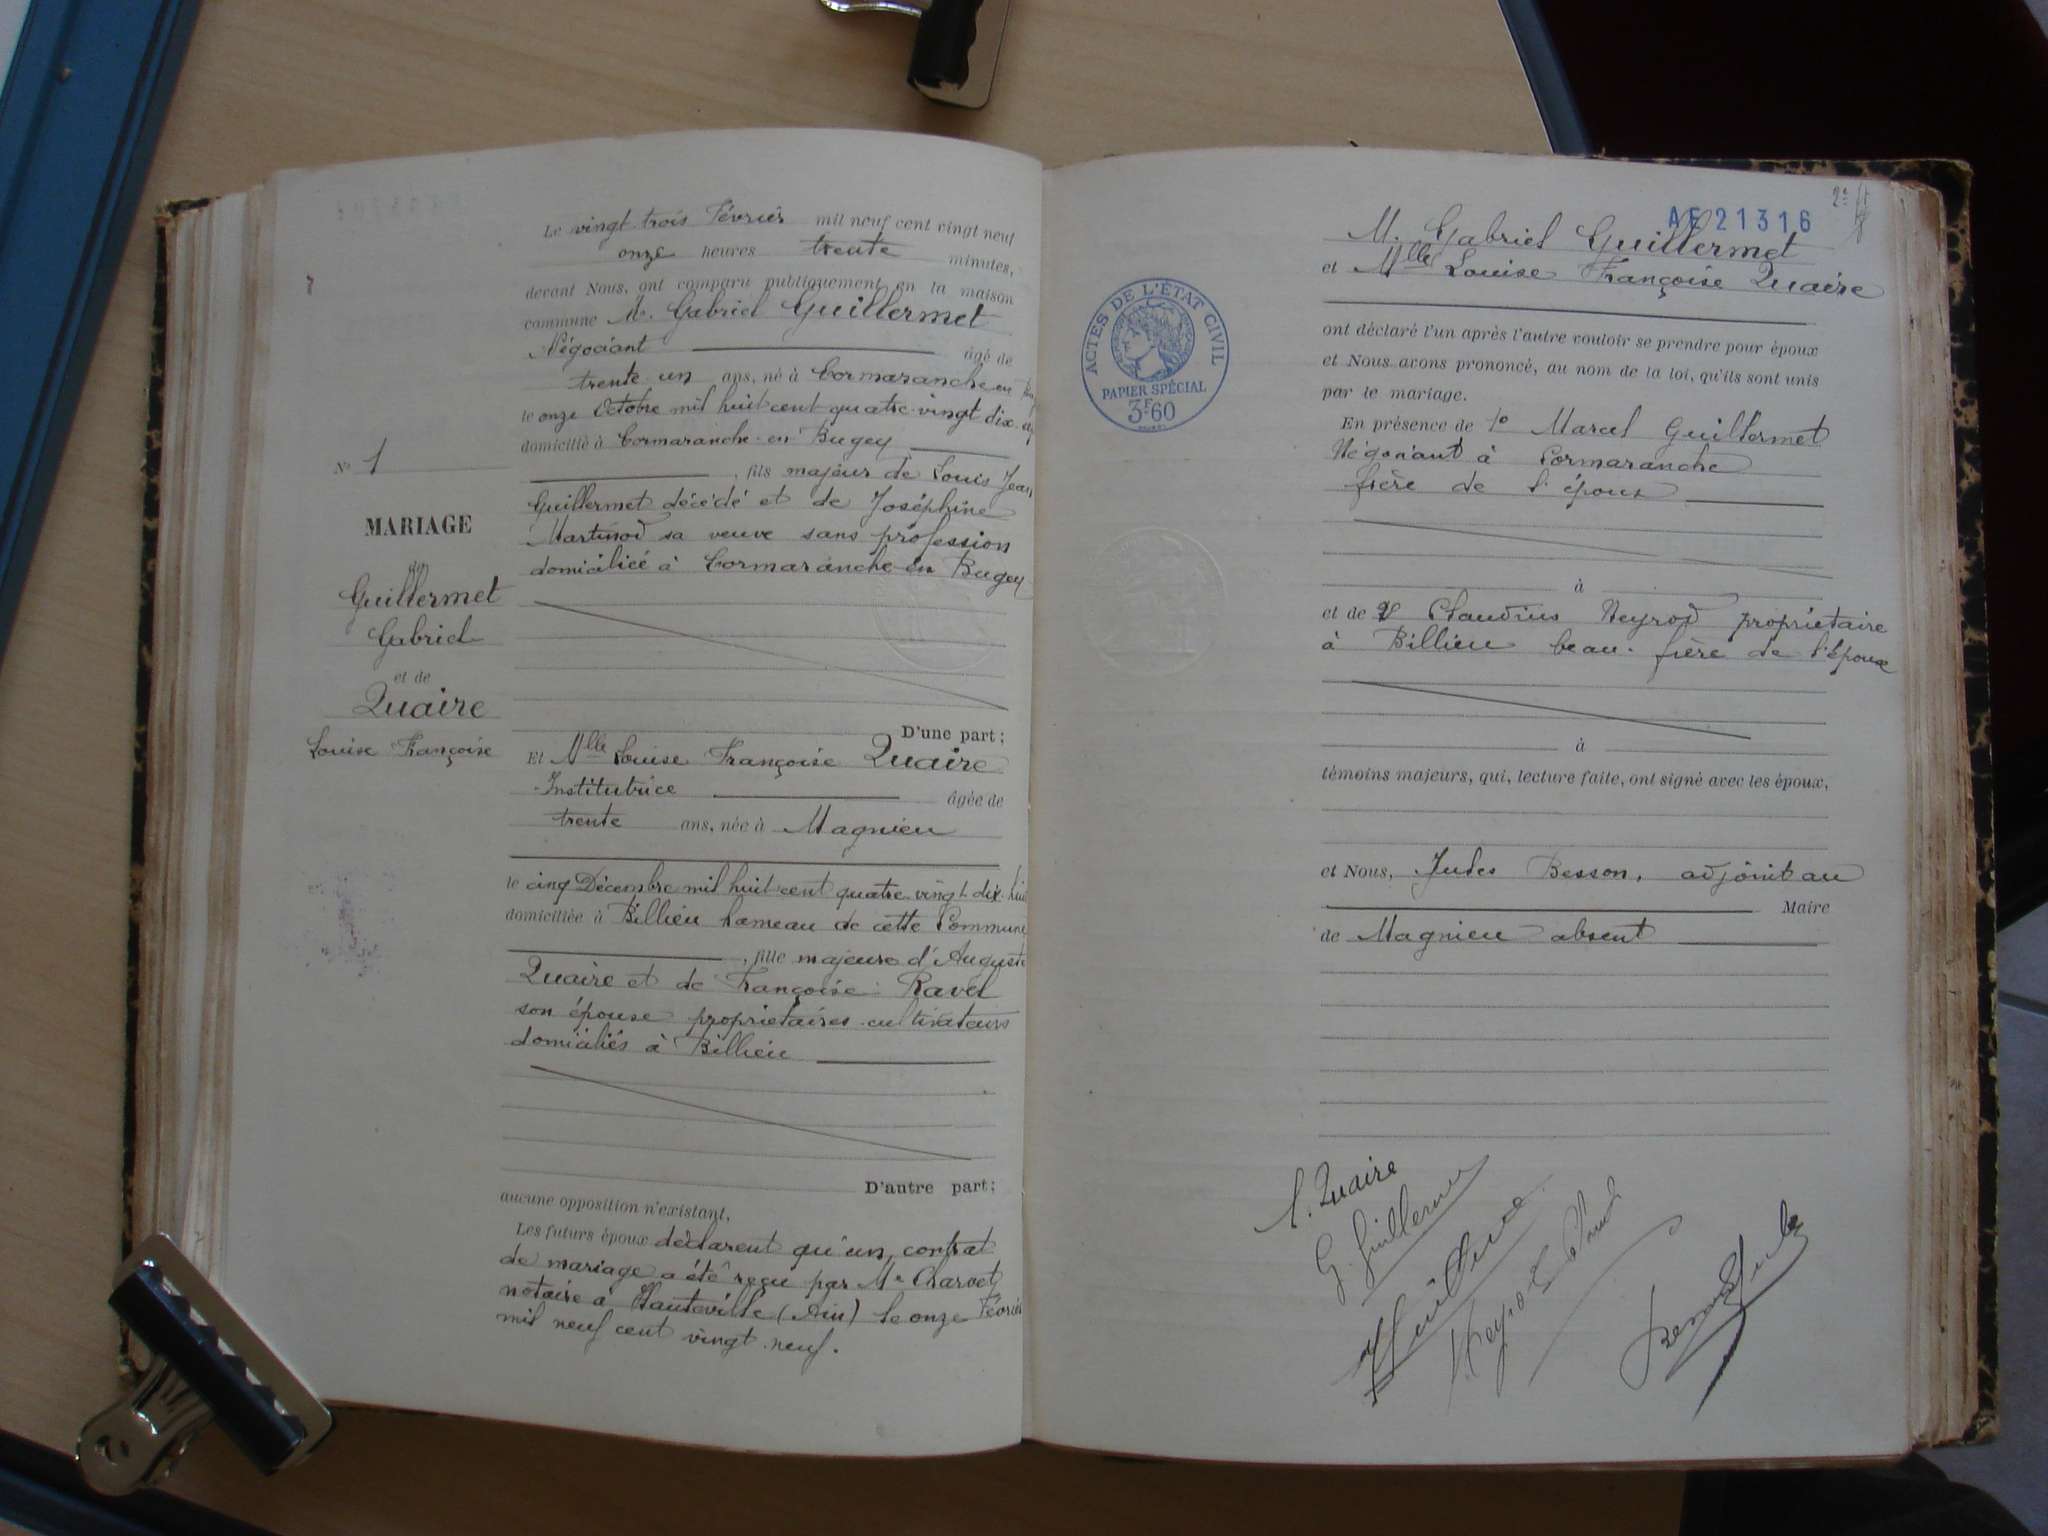 Le vingt trois Février mil neuf cent vingt neuf
onze heures trente minutes,
devant Nous, ont comparu publiquement en la maison
commune Mr. Gabriel Guillermet
Négociant âgé de
trente-un ans, né à Cormaranche en
le onze Octobre mil huit cent quatre-vingt dix
domicilié à Cormaranche-en Bugey
, fils majeur de Louis Jean
Guillermet décédé et de Joséphine
Martinod sa veuve sans profession
domiciliée à Cormaranche-en Bugey
N° 1
MARIAGE
de
Guillermet
Gabriel
et de
Quaire
Louise Françoise
D'une part;
Et Mlle Louise Françoise Quaire
Institutrice âgée de
trente ans, née à Magnieu
le cinq Décembre mil huit cent quatre-vingt dix-huit
domiciliée à Billieu hameau de cette Commune
, fille majeure d'Auguste
Quaire et de Françoise Ravet
son épouse propriétaires-cultivateurs
domiciliés à Billieu
D'autre part;
aucune opposition n'existant,
Les futurs époux déclarent qu'un contrat
de mariage a été reçu par Me Charvet
notaire à Hauteville (Ain) le onze Février
mil neuf cent vingt-neuf.
AE21316
2e
M. Gabriel Guillermet
et Mlle Louise Françoise Quaire
ACTES DE L'ÉTAT CIVIL
PAPIER SPÉCIAL
3F60
ont déclaré l'un après l'autre vouloir se prendre pour époux
et Nous avons prononcé, au nom de la loi, qu'ils sont unis
par le mariage.
En présence de 1o Marcel Guillermet
Négociant à Cormaranche
frère de l'époux
à
et de 2 Claudius Neyrod propriétaire
à Billieu beau-frère de l'épouse
à
témoins majeurs, qui, lecture faite, ont signé avec les époux,
et Nous, Jules Besson, adjoint au
Maire
de Magnieu absent
L. Quaire
G. Guillermet